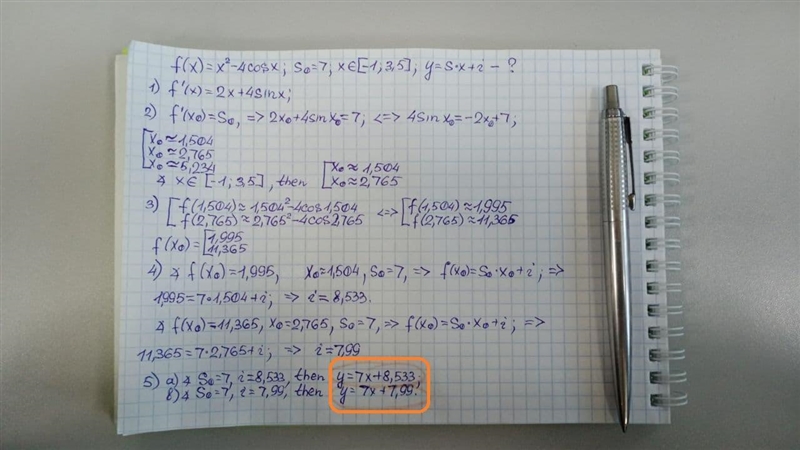 f(x)=x²-4cosx; S₀=7, x∈[-1;3,5], y=S·x+i - ?
1) f'(x)=2x+4sinx;
2) f'(x₀)=S₀, => 2x₀+4sinx₀=7, <=> 4sinx₀=-2x₀+7;
x₀≈1,504
x₀≈2,765
x₀≈5,234
∢ x∈[-1;3,5], then [x₀≈1,504
x₀≈2,765
3) [f(1,504)≈1,504²-4cos1,504 <=> [f(1,504)≈1,995
f(2,765)≈2,765²-4cos2,765 f(2,765)≈11,365
f(x₀)=[1,995
11,365
4) ∢ f(x₀)=1,995, x₀=1,504, S₀=7, => f(x₀)=S₀·x₀+i; =>
1,995=7·1,504+i; => i=8,533.
∢ f(x₀)=11,365, x₀=2,765, S₀=7, => f(x₀)=S₀·x₀+i; =>
11,365=7·2,765+i; => i=7,99
5) a) ∢ S₀=7, i=8,533, then y=7x+8,533,
b) ∢ S₀=7, i=7,99, then y=7x+7,99.